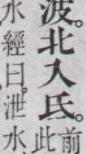 波。北入氐。前
此
水經曰。泄水